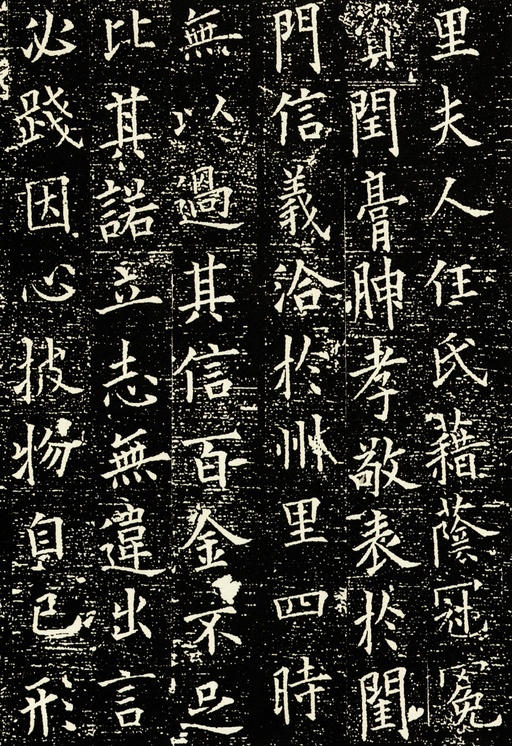 里夫人任氏藉蔭冠冕
閏膏腴孝敬表於閨
門信義洽於州里四時
無以過其信百金不足
比其諾立志無違出言
必踐因心披物自已形